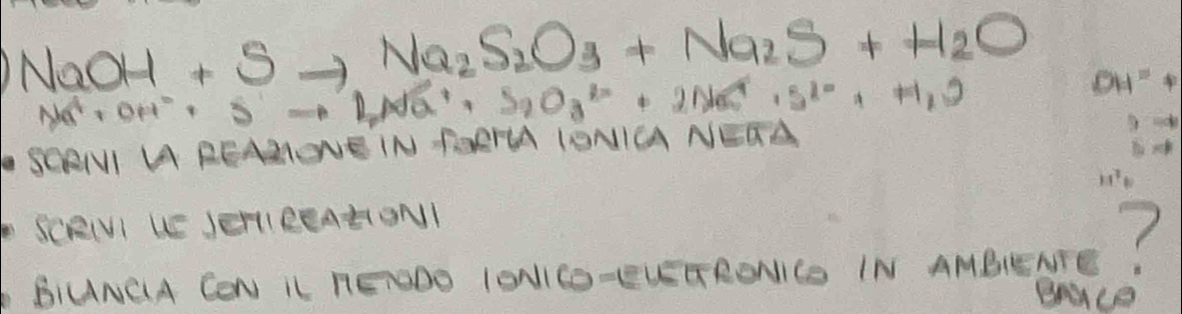 ) NaOH + S → Na₂S₂O₃ + Na₂S + H₂O
Na⁺ + OH⁻ + S → 2Na⁺ + S₂O₃²⁻ + 2Na⁺ + S²⁻ + H₂O
OH⁻ +
• SCRIVI LA REAZIONE IN FORMA IONICA NETTA
• SCRIVI LE SEMIREAZIONI
?
• BILANCIA CON IL METODO IONICO-ELETTRONICO IN AMBIENTE
BASICO